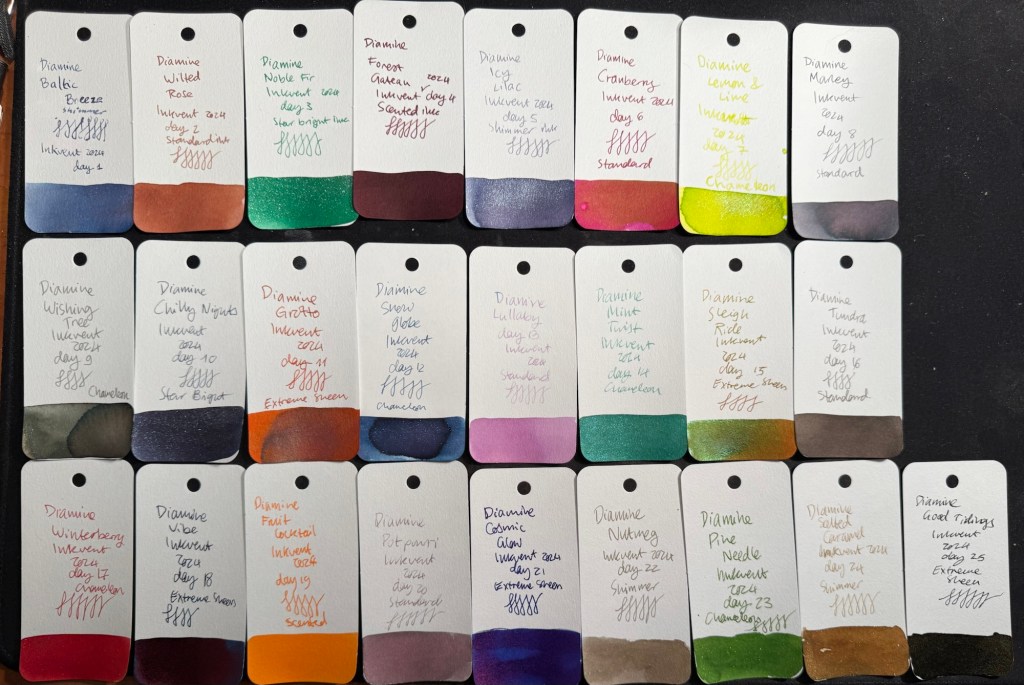 Diamine
Baltic
Breeze
shimmer
Inkvent 2024
day 1
Diamine
Wilted
Rose
Inkvent 2024
day 2
Standard ink
Diamine
Noble Fir
Inkvent 2024
day 3
Star bright ink
Diamine
Forest
Gateau 2024
Inkvent day 4
Scented ink
Diamine
Icy
Lilac
Inkvent 2024
day 5
Shimmer ink
Diamine
Cranberry
Inkvent 2024
day 6
Standard
Diamine
Lemon &
Lime
Inkvent
2024
day 7
Chameleon
Diamine
Marley
Inkvent
2024
day 8
Standard
Diamine
Wishing
Tree
Inkvent
2024
day 9
Chameleon
Diamine
Chilly Nights
Inkvent
2024
day 10
Star Bright
Diamine
Grotto
Inkvent
2024
day 11
Extreme sheen
Diamine
Snow
globe
Inkvent
2024
day 12
chameleon
Diamine
Lullaby
day 13
Inkvent
2024
Standard
Diamine
Mint
Twist
Inkvent
2024
day 14
Chameleon
Diamine
Sleigh
Ride
Inkvent
2024
day 15
Extreme sheen
Diamine
Tundra
Inkvent
2024
day 16
Standard
Diamine
Winterberry
Inkvent
2024
day 17
Chameleon
Diamine
Vibe
Inkvent
2024
day 18
Extreme sheen
Diamine
Fruit
Cocktail
Inkvent
2024
day 19
Scented
Diamine
Inkvent
2024
day 20
Standard
Diamine
Cosmic
Glow
Inkvent 2024
day 21
Extreme sheen
Diamine
Nutmeg
Inkvent 2024
day 22
Shimmer
Diamine
Pine
Needle
Inkvent
2024
day 23
Chameleon
Diamine
Salted
Caramel
Inkvent 2024
day 24
Shimmer
Diamine
Good Tidings
Inkvent
2024
day 25
Extreme
sheen